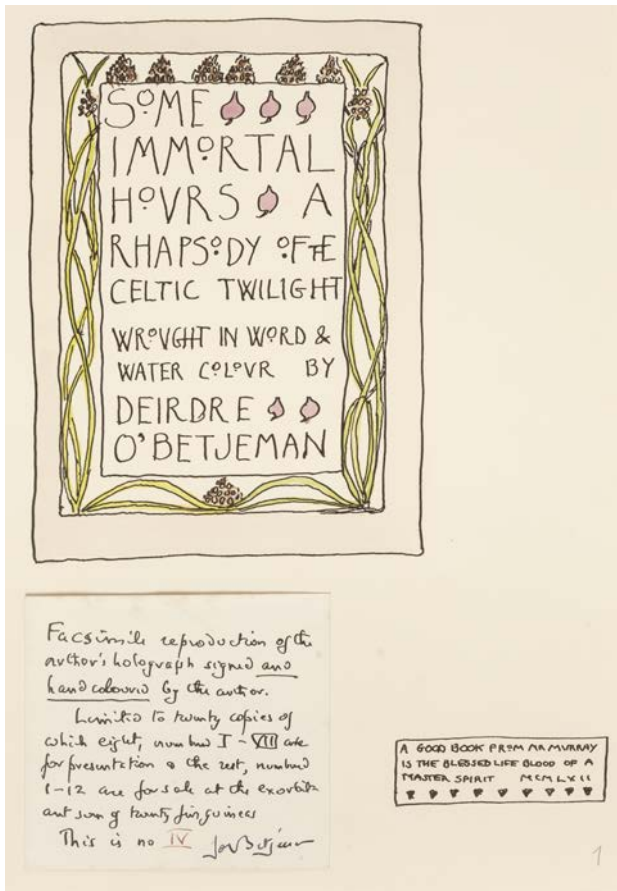 SOME
IMMORTAL
HOVRS A
RHAPSODY OF THE
CELTIC TWILIGHT
WROVGHT IN WORD &
WATER COLOVR BY
DEIRDRE
O'BETJEMAN
Facsimile reproduction of the
author's holograph signed and
hand coloured by the author.
Limited to twenty copies of
which eight, numbered I - VIII are
for presentation & the rest, numbered
1-12 are for sale at the exorbit
ant sum of twenty five guineas
This is no IV John Betjeman
A GOOD BOOK FROM MR MURRAY
IS THE BLESSED LIFE BLOOD OF A
MASTER SPIRIT MCMLXII
1